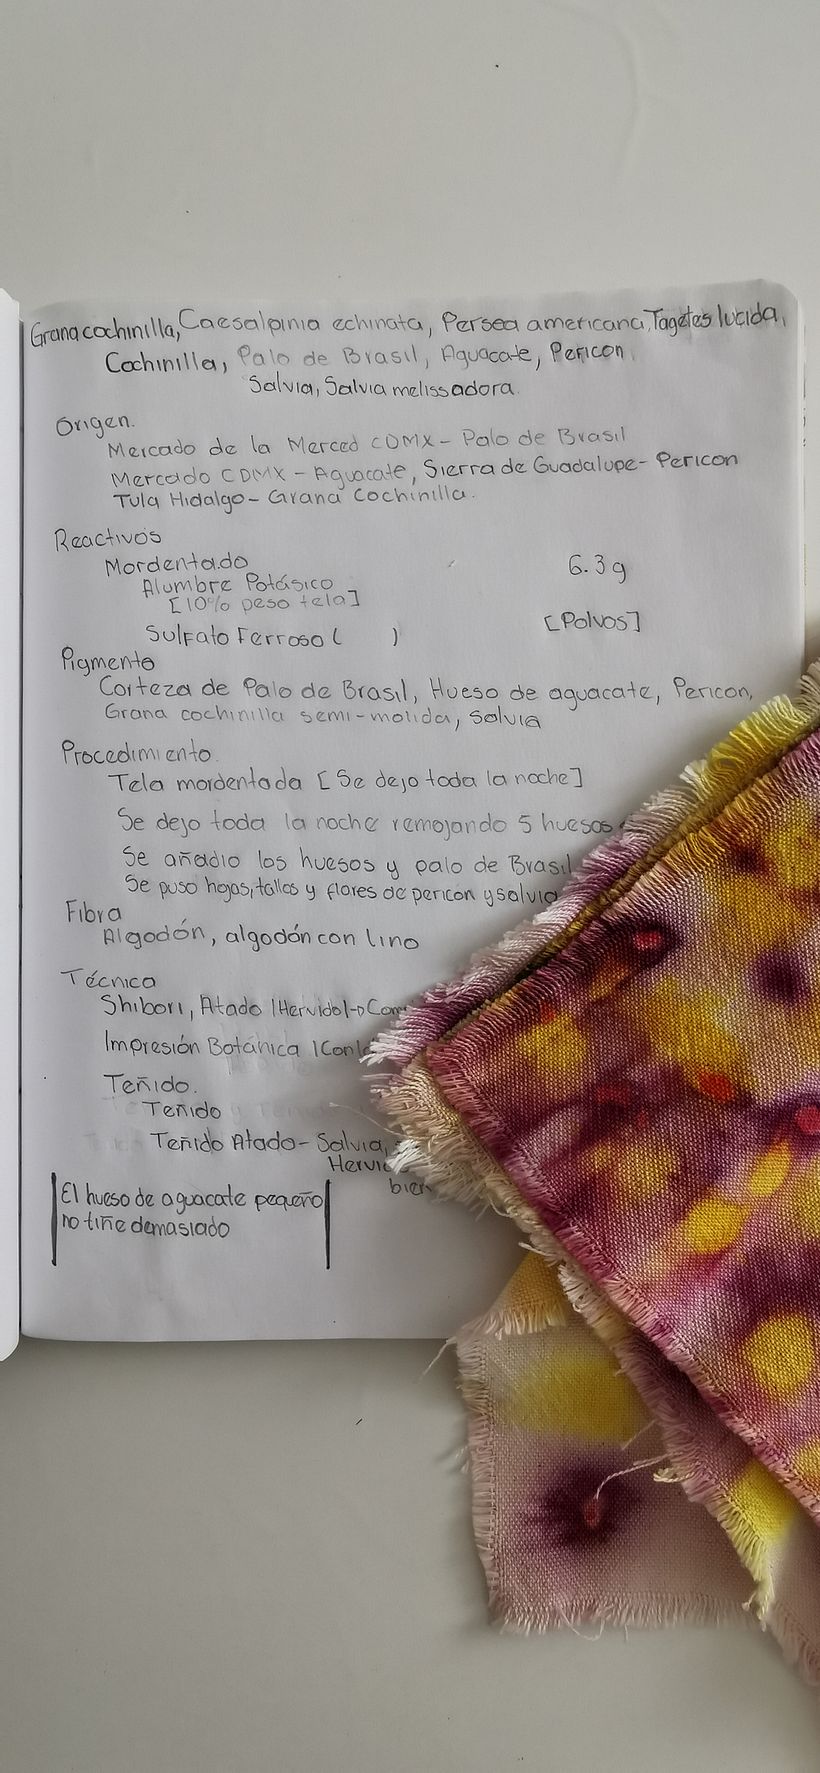 Grana cochinilla, Caesalpinia echinata, Persea americana, Tagetes lucida,
Cochinilla, Palo de Brasil, Aguacate, Pericon,
Salvia, Salvia melissadora.
Origen.
Mercado de la Merced CDMX - Palo de Brasil
Mercado CDMX - Aguacate, Sierra de Guadalupe - Pericon
Tula Hidalgo - Grana Cochinilla.
Reactivos
Mordentado 6.3g
Alumbre Potásico
[10% peso tela]
Sulfato Ferroso ( ) [Polvos]
Pigmento
Corteza de Palo de Brasil, Hueso de aguacate, Pericon,
Grana cochinilla semi-molida, Salvia
Procedimiento.
Tela mordentada [Se dejo toda la noche]
Se dejo toda la noche remojando 5 huesos
Se añadio los huesos y palo de Brasil
Se puso hojas, tallos y flores de pericon y salvia
Fibra
Algodón, algodón con lino
Técnica
Shibori, Atado |Hervido|→
Impresión Botánica
Teñido.
Teñido
Teñido Atado - Salvia,
bien
El hueso de aguacate pequeño
no tiñe demasiado